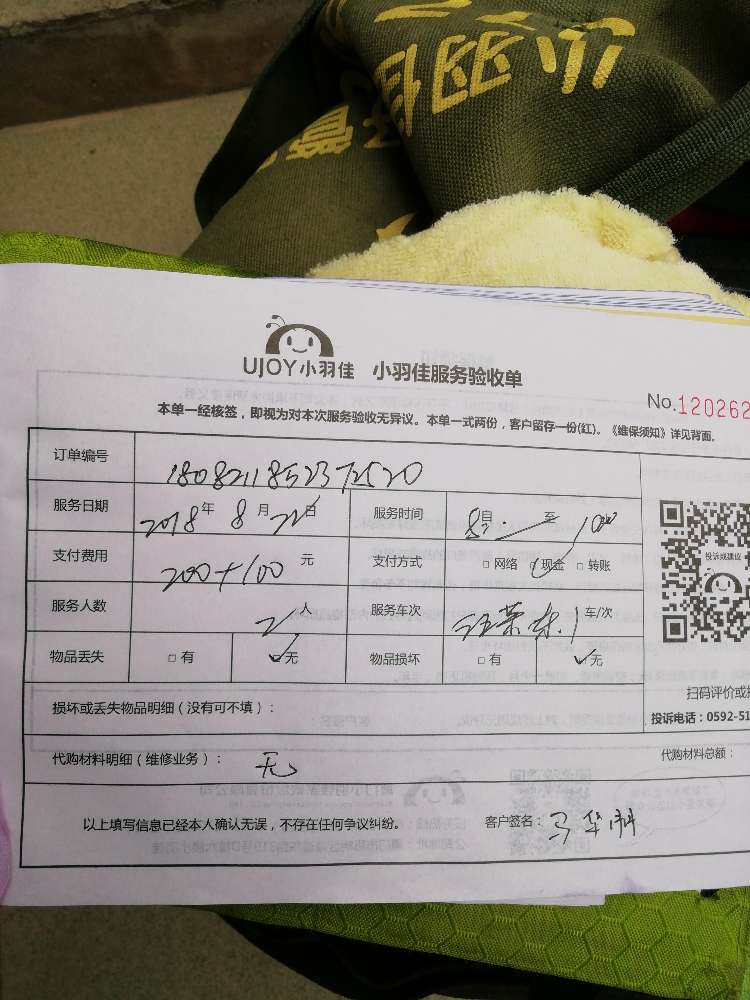 UJOY小羽佳 小羽佳服务验收单
No.120262
本单一经核签，即视为对本次服务验收无异议。本单一式两份，客户留存一份(红)。《维保须知》详见背面。
订单编号 1808211852372520
服务日期 2018年 8月 22日 服务时间 自 8: 至 10
支付费用 200+100 元 支付方式 □网络 ☑现金 □转账
服务人数 2人 服务车次 1车/次
物品丢失 □有 ☑无 物品损坏 □有 ☑无
投诉或建议
扫码评价或
投诉电话：0592-51
损坏或丢失物品明细（没有可不填）：
代购材料明细（维修业务）： 无 代购材料总额：
以上填写信息已经本人确认无误，不存在任何争议纠纷。 客户签名： 马华